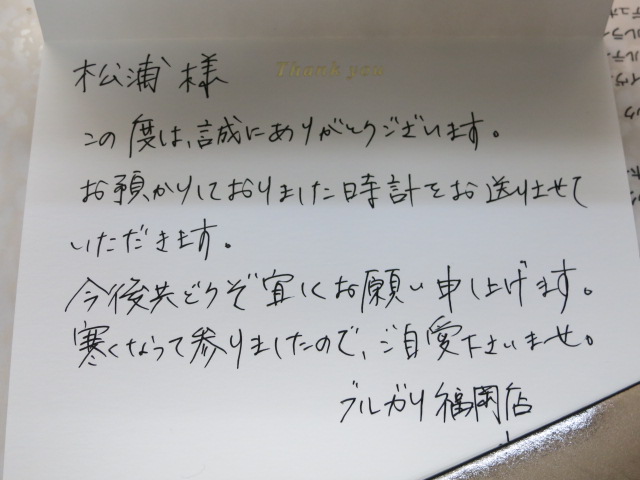 Thank you
松浦様
この度は、誠にありがとうございます。
お預かりしておりました時計をお送りさせて
いただきます。
今後共どうぞ宜しくお願い申し上げます。
寒くなって参りましたので、ご自愛下さいませ。
ブルガリ福岡店